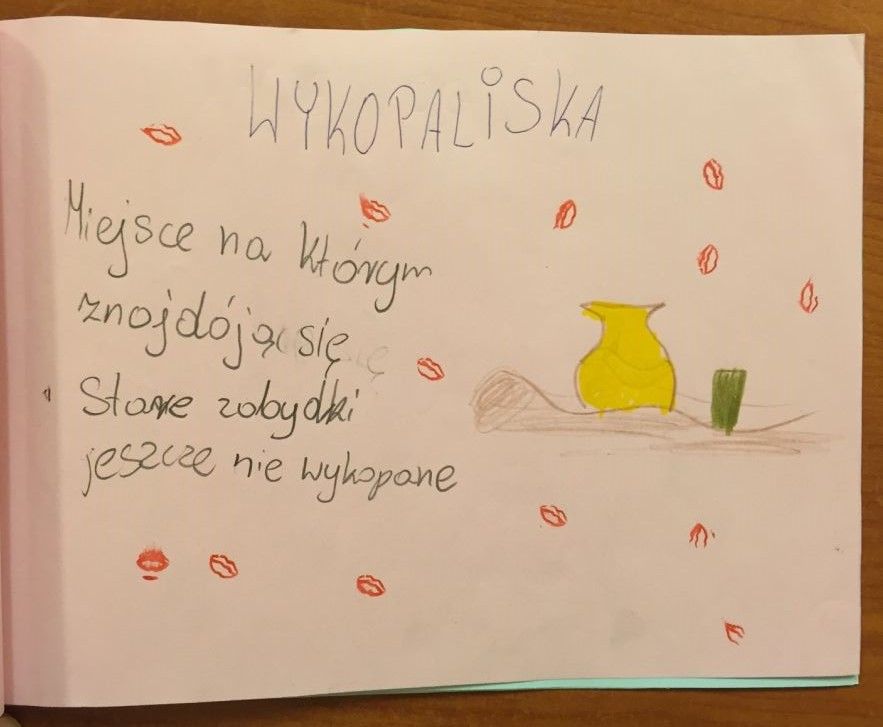 WYKOPALISKA
Miejsce na którym
znajdóją się
Stare zobydki
jeszcze nie wykopane